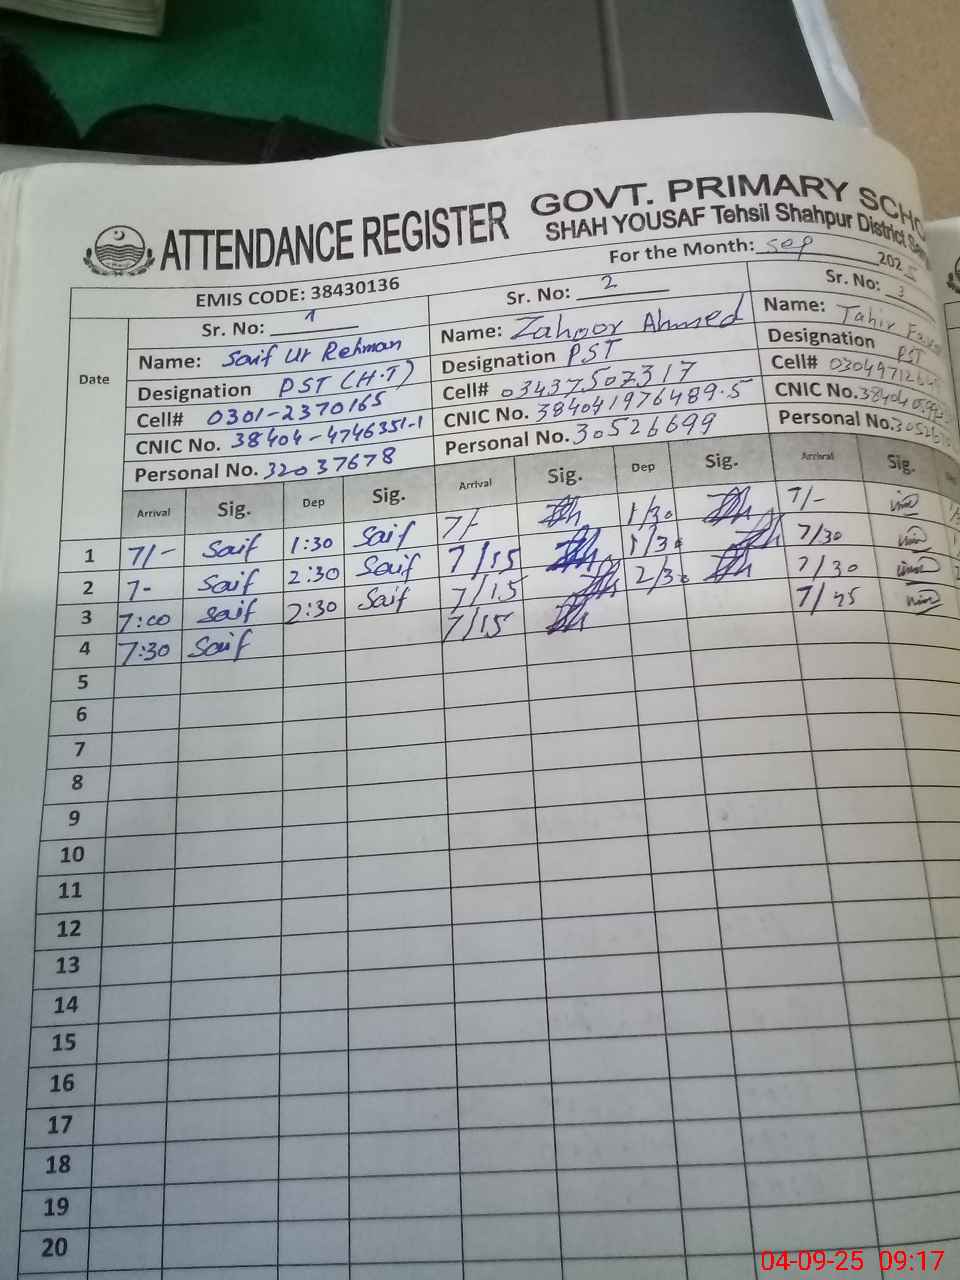 ATTENDANCE REGISTER
GOVT. PRIMARY
SHAH YOUSAF Tehsil Shahpur District
EMIS CODE: 38430136
For the Month: Sep 202
Date
Sr. No: 1
Name: Saif Ur Rehman
Designation PST (H.T)
Cell# 0301-2370165
CNIC No. 38404-4746351-1
Personal No. 32037678
Sr. No: 2
Name: Zahoor Ahmed
Designation PST
Cell# 03437507317
CNIC No. 384041976489.5
Personal No. 30526699
Sr. No: 3
Name: Tahir
Designation PST
Cell#
CNIC No.
Personal No.
Arrival Sig. Dep Sig. Arrival Sig. Dep Sig. Arrival Sig.
1 7/- Saif 1:30 Saif 7/- 1/30 7/-
2 7- Saif 2:30 Saif 7/15 1/30 7/30
3 7:00 Saif 2:30 Saif 7/15 2/30 7/30
4 7:30 Saif 7/15
5
6
7
8
9
10
11
12
13
14
15
16
17
18
19
20
04-09-25 09:17